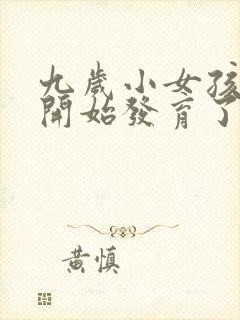 九歲小女孩
開始發育了
黃慎